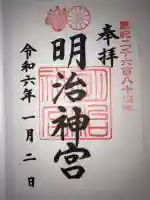 皇紀二千六百八十四年
奉拝
明治神宮
令和六年一月二日